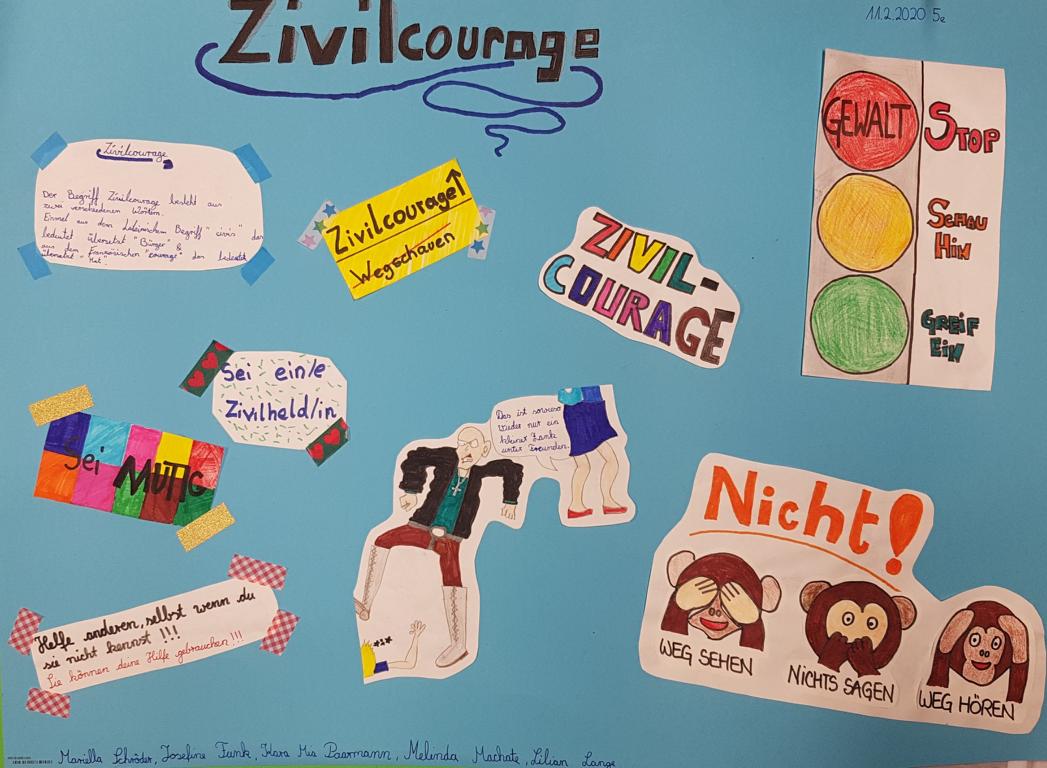 Zivilcourage
11.2.2020 5e
Zivilcourage
Der Begriff Zivilcourage besteht aus
zwei verschiedenen Wörtern.
Einmal aus dem Lateinischen Begriff "civis" das
bedeutet übersetzt "Bürger" &
aus dem Französischen "courage" das bedeutet
übersetzt "Mut".
Zivilcourage↑
Wegschauen
ZIVIL-
COURAGE
GEWALT STOP
SCHAU
HIN
GREIF
EIN
Sei ein/e
Zivilheld/in
Sei MUTIG
Das ist sowieso
wieder nur ein
kleiner Zank
unter Freunden.
Nicht!
WEG SEHEN
NICHTS SAGEN
WEG HÖREN
Helfe anderen, selbst wenn du
sie nicht kennst!!!
Sie können deine Hilfe gebrauchen!!!
Mariella Schröder, Josefine Funk, Kara Mia Paarmann, Melinda Machate, Lilian Lange